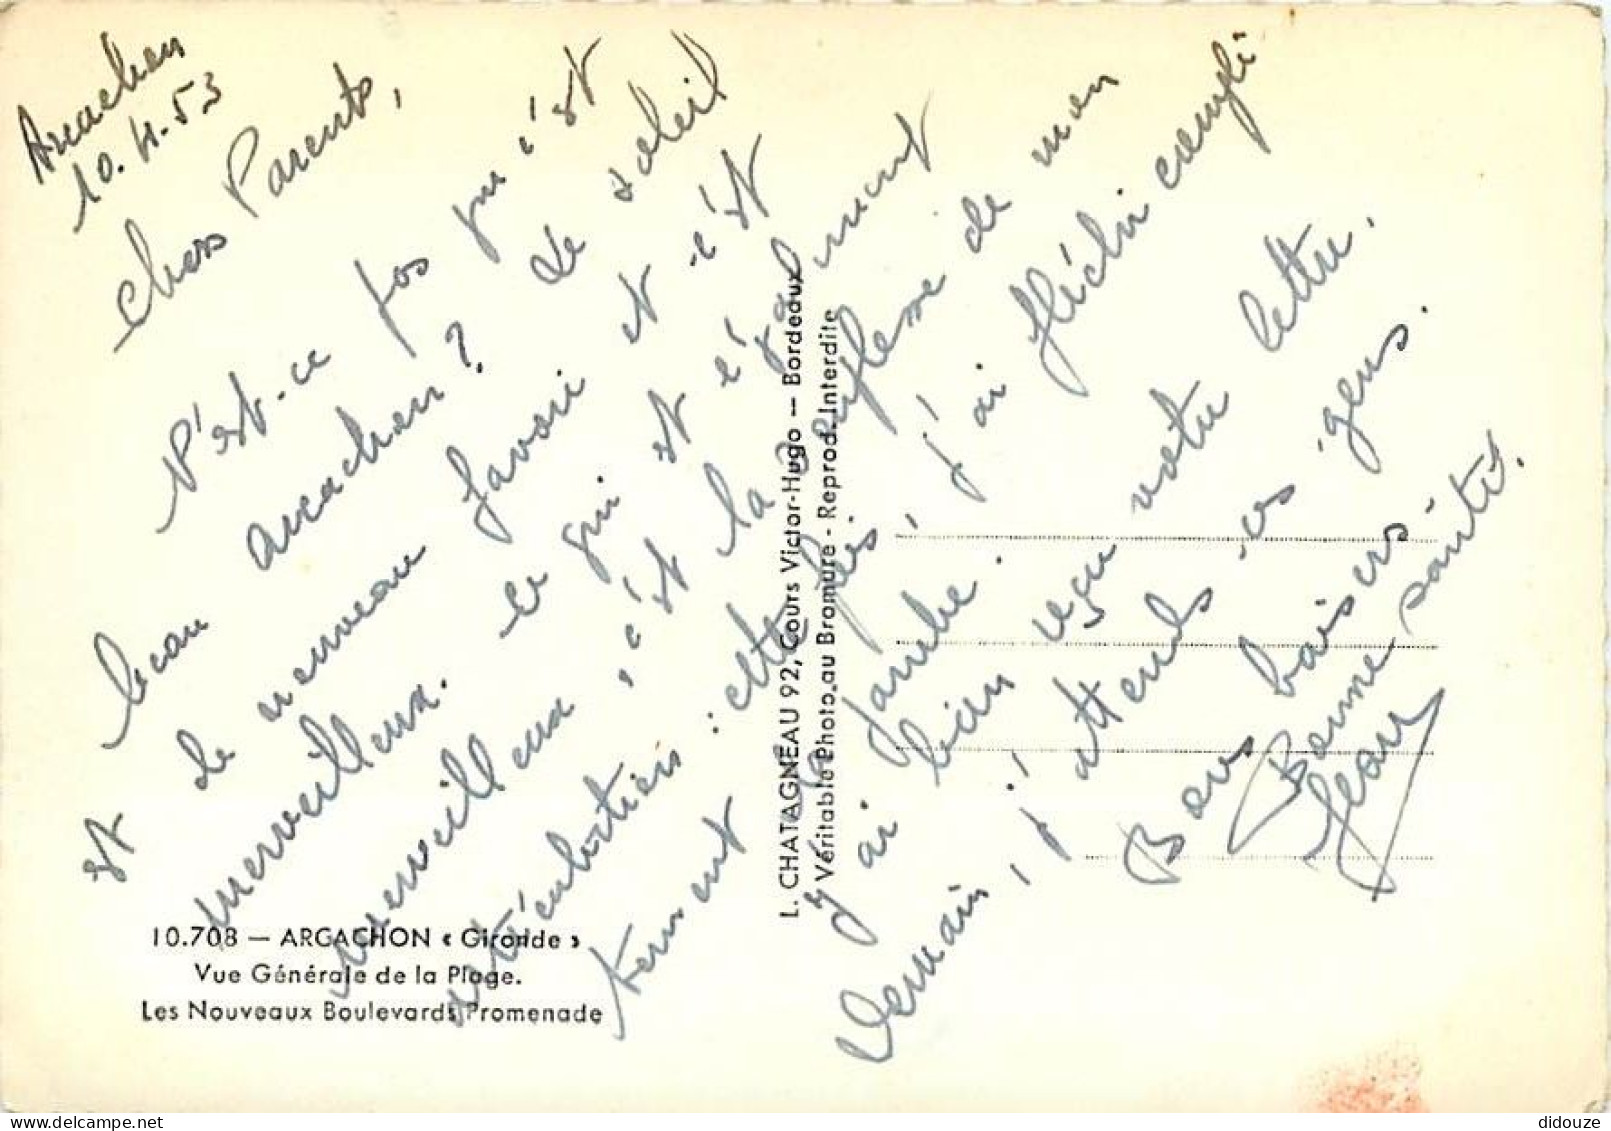 Arcachon
10.4.53
Chers Parents,
N'est-ce pas que c'est
beau Arcachon? Le soleil
est de nouveau favori et c'est
merveilleux. Ce qui est également
merveilleux, c'est la
: cette fois, j'ai fléchi
de mon
jambe.
J'ai bien reçu votre lettre.
Demain, j'attends ces gens.
Bons baisers.
Bonne santé.
Jean
10.708 — ARCACHON « Gironde »
Vue Générale de la Plage.
Les Nouveaux Boulevards Promenade
L. CHATAGNEAU 92, Cours Victor-Hugo — Bordeaux
Véritable Photo au Bromure - Reprod. Interdite
didouze